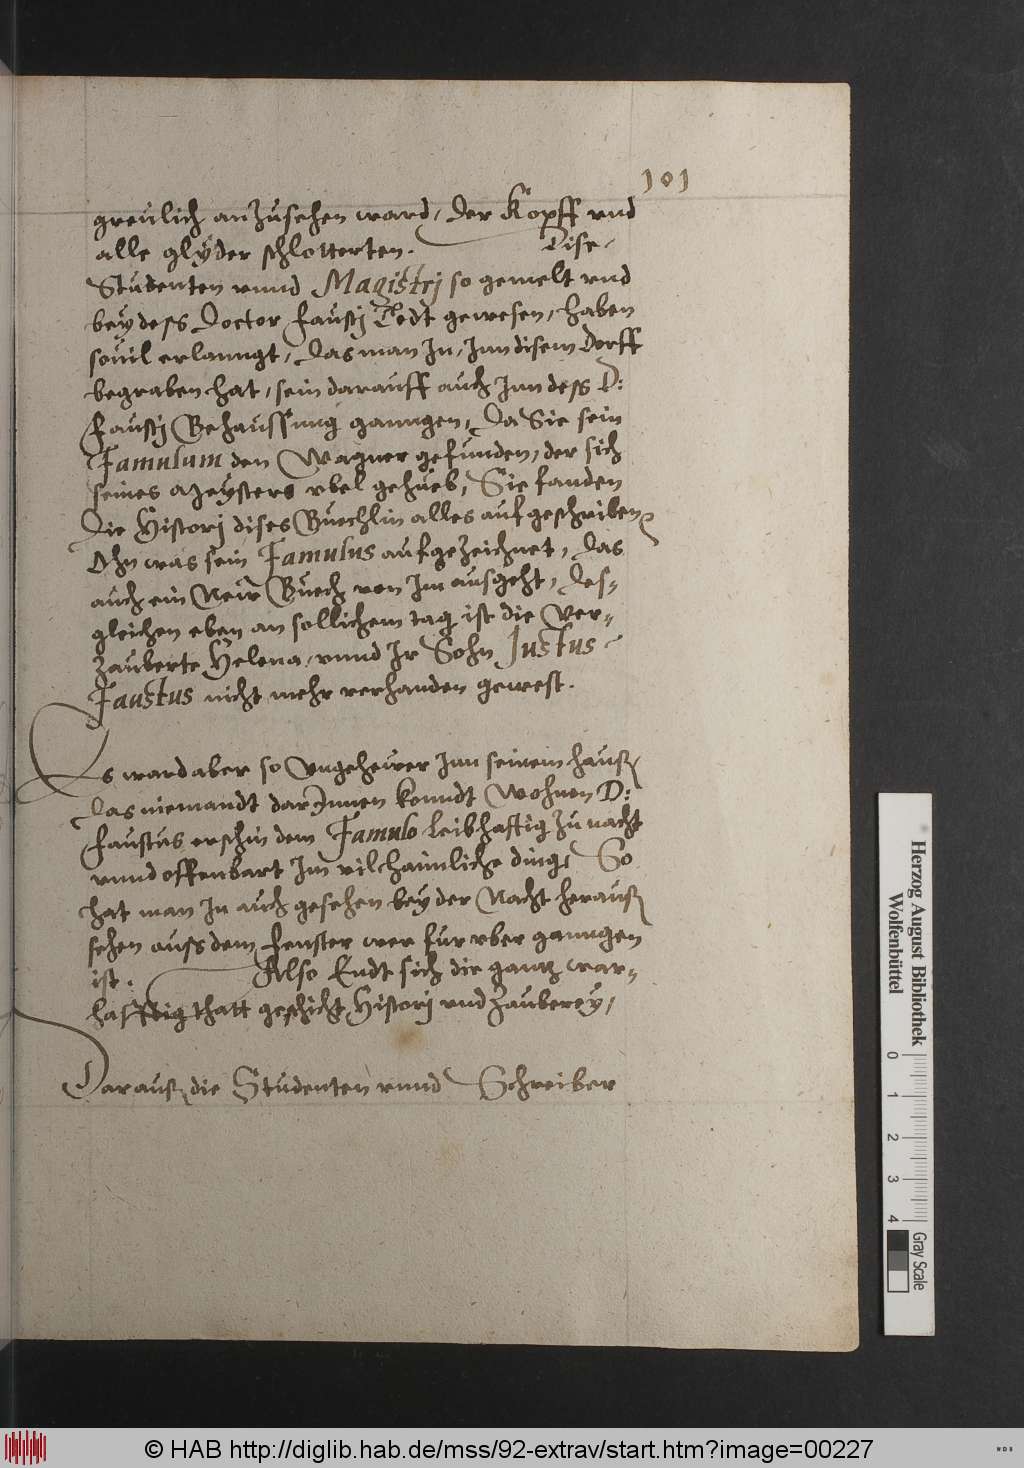 101
greulich anzusehen ward, der Kopff vnd
alle glyder schlotterten. Dise
Studenten vnnd Magistrj so gemelt vnd
bey dess Doctor faustj Todt gewesen, haben
souil erlanngt, das man In, Inn disem Dorff
begraben hat, sein darauff auch Inn dess D:
faustj Behaussung ganngen, Da Sie sein
Famulum den Wagner gefunden, der sich
seines Meysters vbel gehueb, Sie fanden
die Historj dises Buechlin alles aufgeschriben
Ohn was sein Famulus aufgezeichnet, das
auch ein New Buech von Im ausgeht, des-
gleichen eben an sollichem tag ist die ver-
zauberte Helena, vnnd Ir Sohn Justus
Faustus nicht mehr verhanden gewest.
Es ward aber so Vngehewer Inn seinem hauss
das niemandt darInnen konndt Wohnen D:
faustus erschin dem Famulo leibhaftig zu nacht
vnnd offenbart Im vil haimliche ding, So
hat man In auch gesehen bey der Nacht herauss
sehen auss dem fenster wer fur vber ganngen
ist. Also Endt sich die gantz war-
hafftig thatt geschicht Historj vnd Zauberey,
Darauss die Studenten vnnd Schreiber
Herzog August Bibliothek
Wolfenbüttel
0 1 2 3 4
Gray Scale
© HAB http://diglib.hab.de/mss/92-extrav/start.htm?image=00227